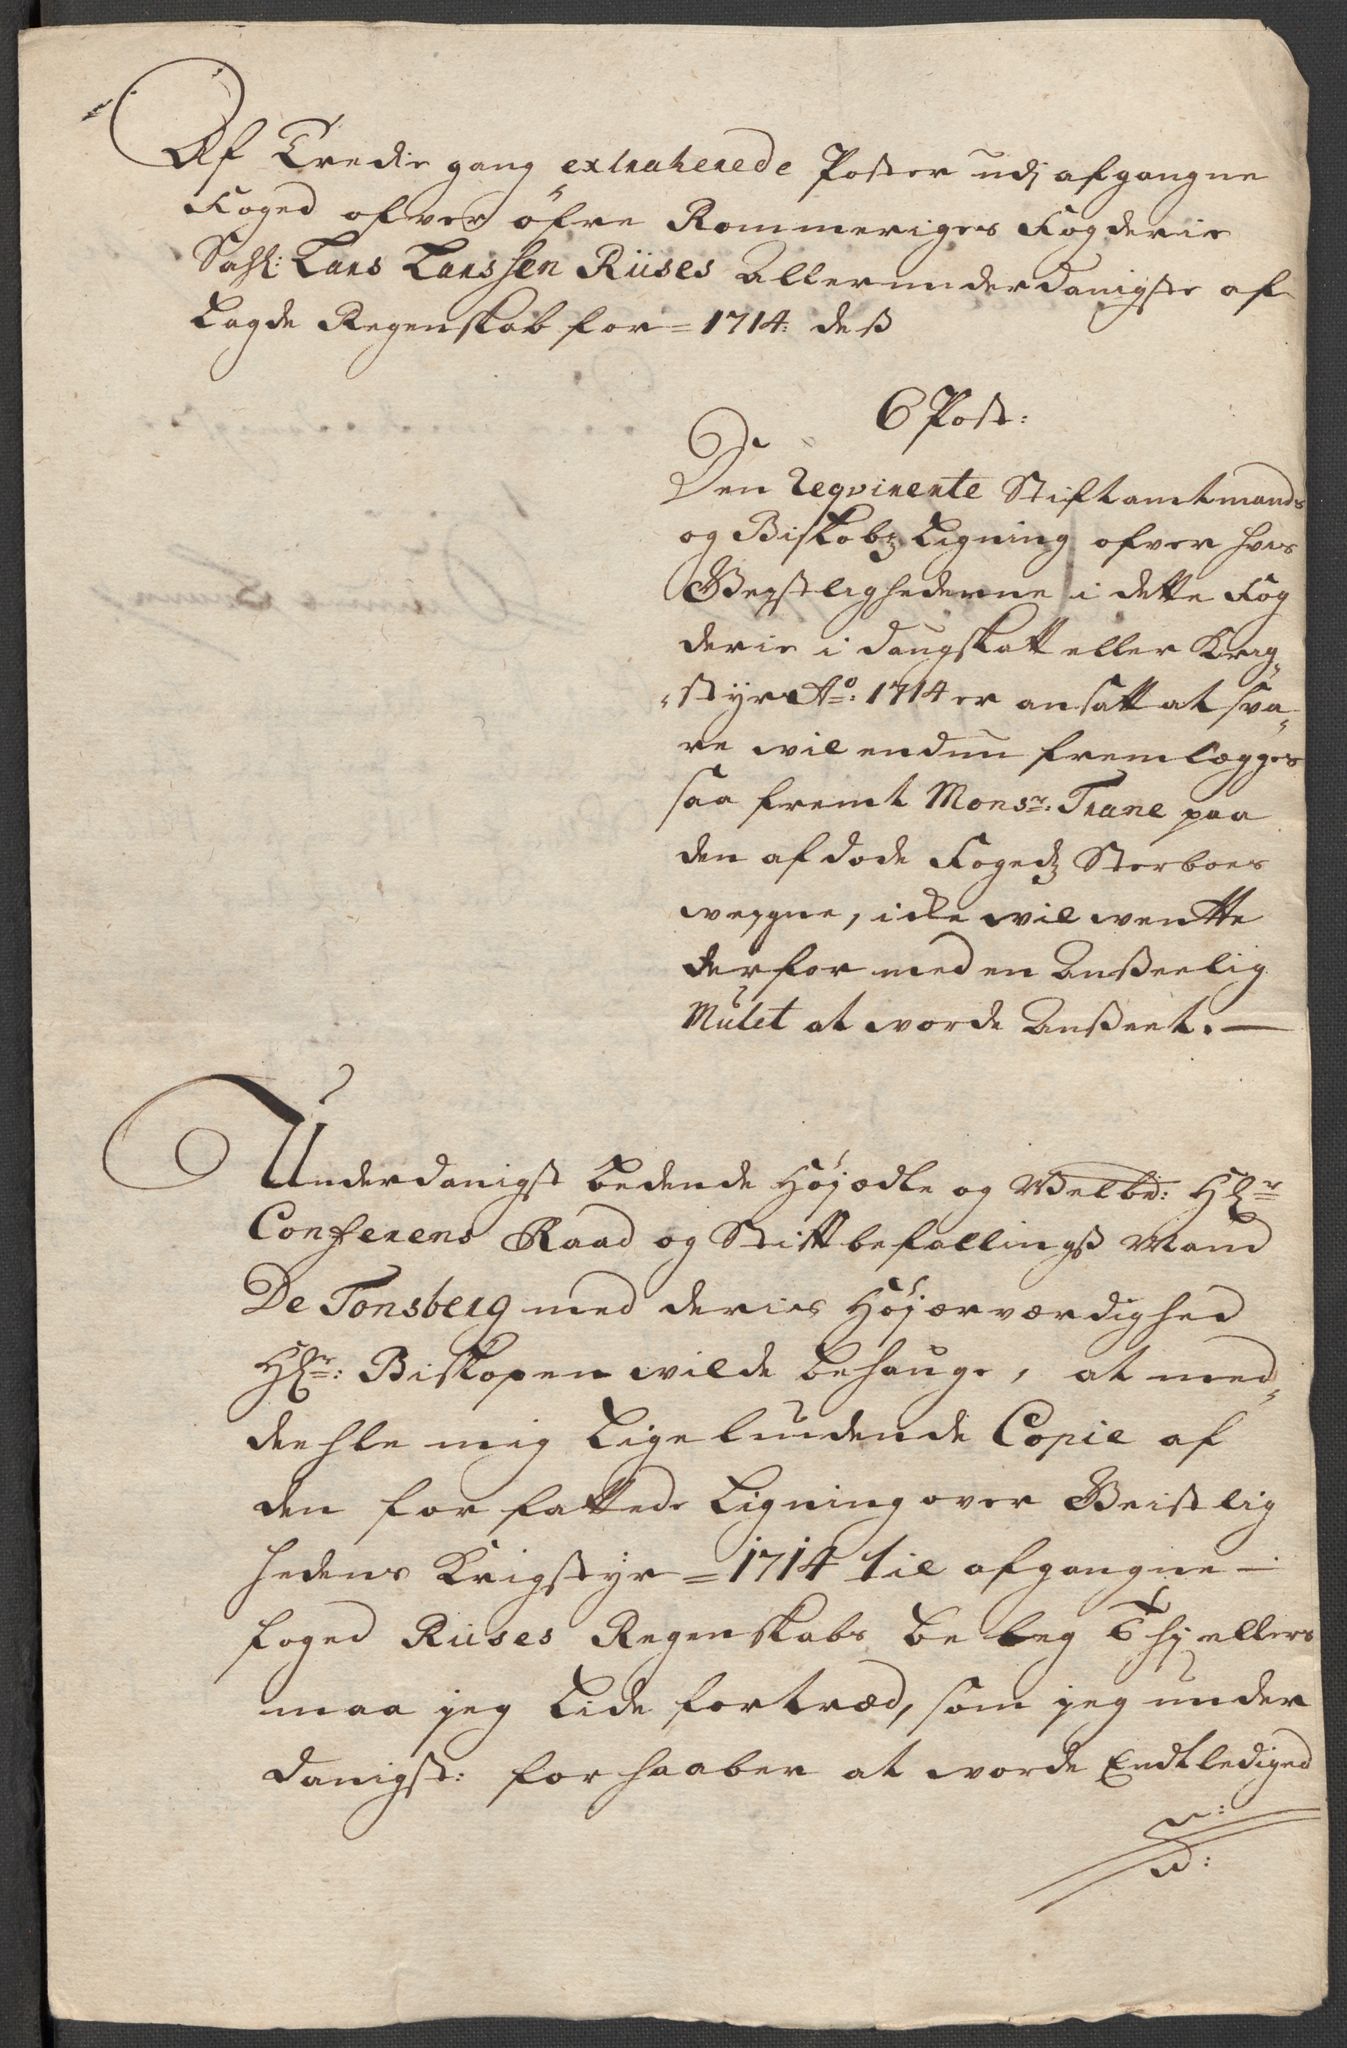 Af Tredie gang extraherede Poster udj afgangne
Foged ofver öfre Rommeriges Fogderie
Sahl: Lars Larssen Riises Allerunderdanigste af
Lagde Regenskab for = 1714: dess
6 Post:
Den Reqvirerte Stiftamtmands
og Biskobs Ligning ofver hvis
Geystlighederne i dette Fog
derie i daugskatt eller Krig„
„styr Ao: 1714 er ansatt at sva„
re vil endnu fremlægges
saa fremt Monsr: Trane paa
den afdøde Fogedz Sterboes
vegne, icke vil ventte
derfor med en Anseelig
Mulct at vorde Anseet. —
Underdanigst bedende Høyædle og Velbr: Hr
Conferens Raad og Stiftbefallings Mand
De Tonsberg med deris Høyærværdighed
Hr: Biskopen vilde behauge, at med„
deehle mig Ligelundende Copie af
den forfattede Ligning over Geistlig
hedens Krigstyr = 1714 til afgangne —
foged Riises Regenskabs ellers
maa jeg Lide fortræd, som jeg under
danigst: forhaaber at vorde Endtlediged